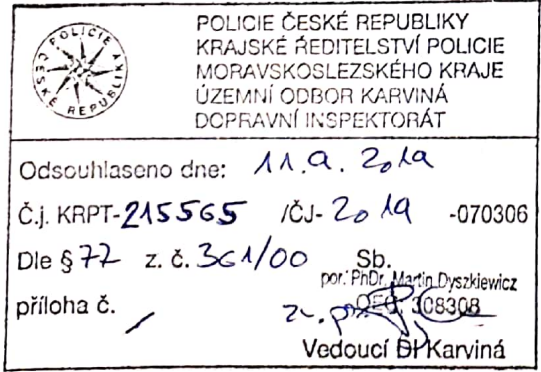 POLICIE ČESKÉ REPUBLIKY
POLICIE ČESKÉ REPUBLIKY
KRAJSKÉ ŘEDITELSTVÍ POLICIE
MORAVSKOSLEZSKÉHO KRAJE
ÚZEMNÍ ODBOR KARVINÁ
DOPRAVNÍ INSPEKTORÁT
Odsouhlaseno dne: 11.9. 2019
Č.j. KRPT-215565 /ČJ- 2019 -070306
Dle § 77 z. č. 361/00 Sb.
por. PhDr. Martin Dyszkiewicz
příloha č. / OEČ 308308
Vedoucí DI Karviná